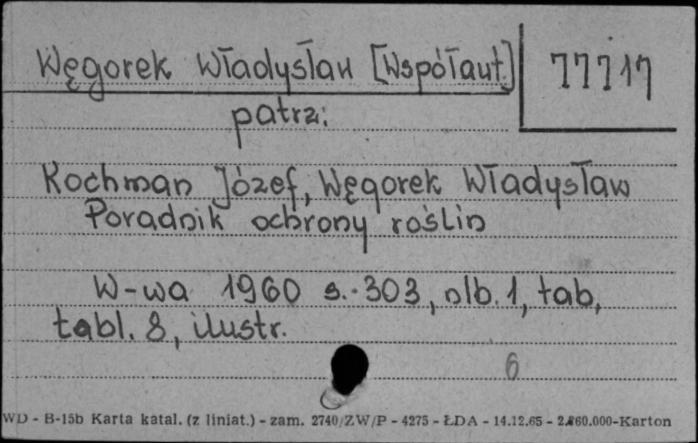 Węgorek Władysław [Współaut.]
77717
patrz:
Kochman Józef, Węgorek Władysław
Poradnik ochrony roślin
W-wa 1960 s. 303, nlb. 1, tab,
tabl. 8, ilustr.
6
WD - B-15b Karta katal. (z liniat.) - zam. 2740/ZW/P - 4275 - ŁDA - 14.12.65 - 2.860.000-Karton